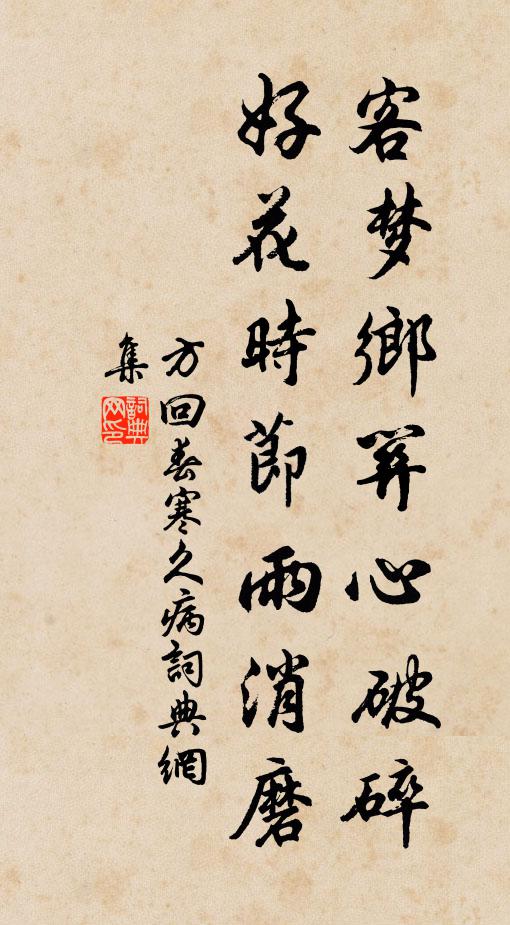 客梦鄉關心破碎
好花時節雨消磨
方回春寒久病詞典網
集
詞典網印